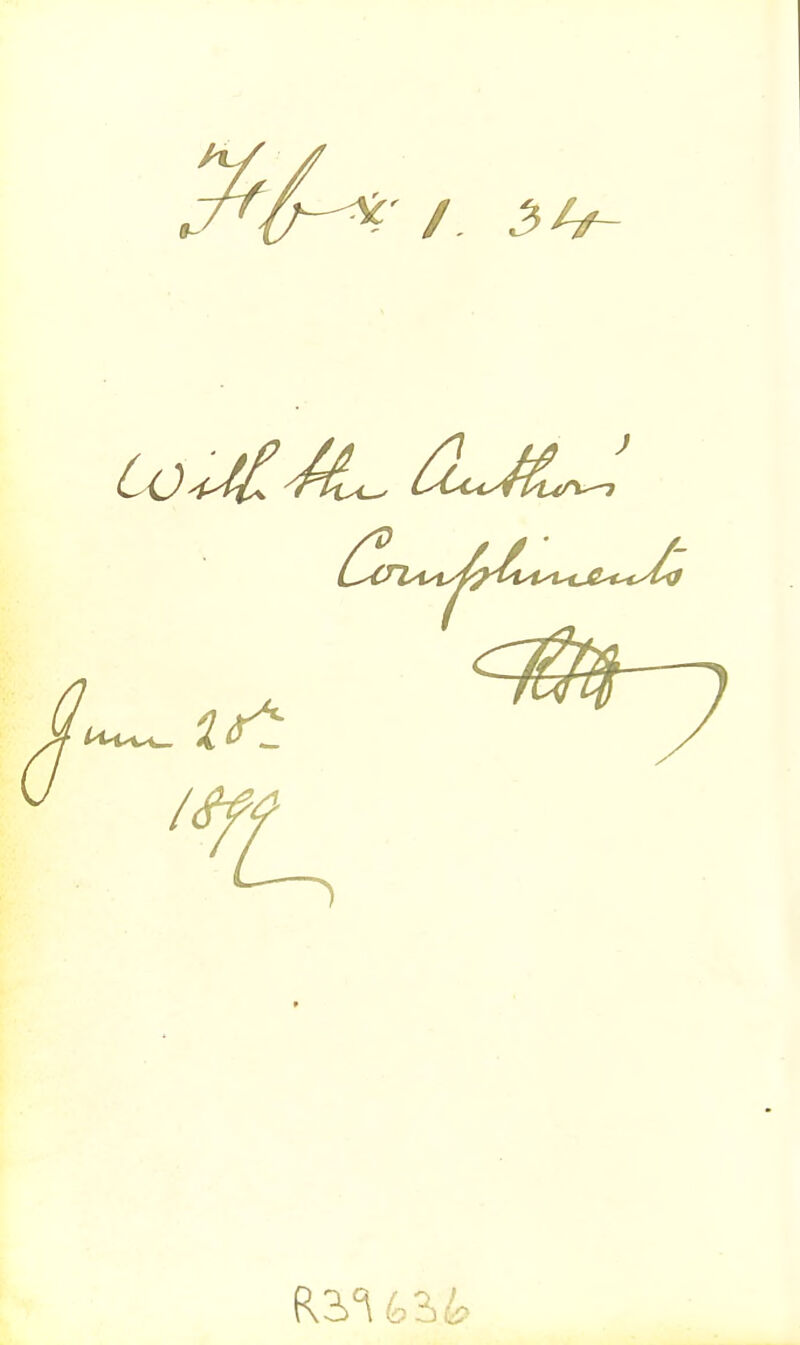 1. 34
With the Author's
Compliments
June 28th
1899
R39636